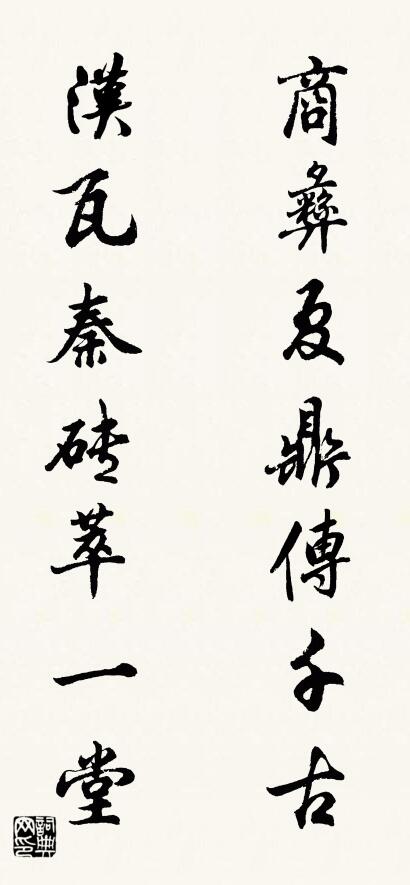 商彝夏鼎傳千古
漢瓦秦磚萃一堂
詞典網印